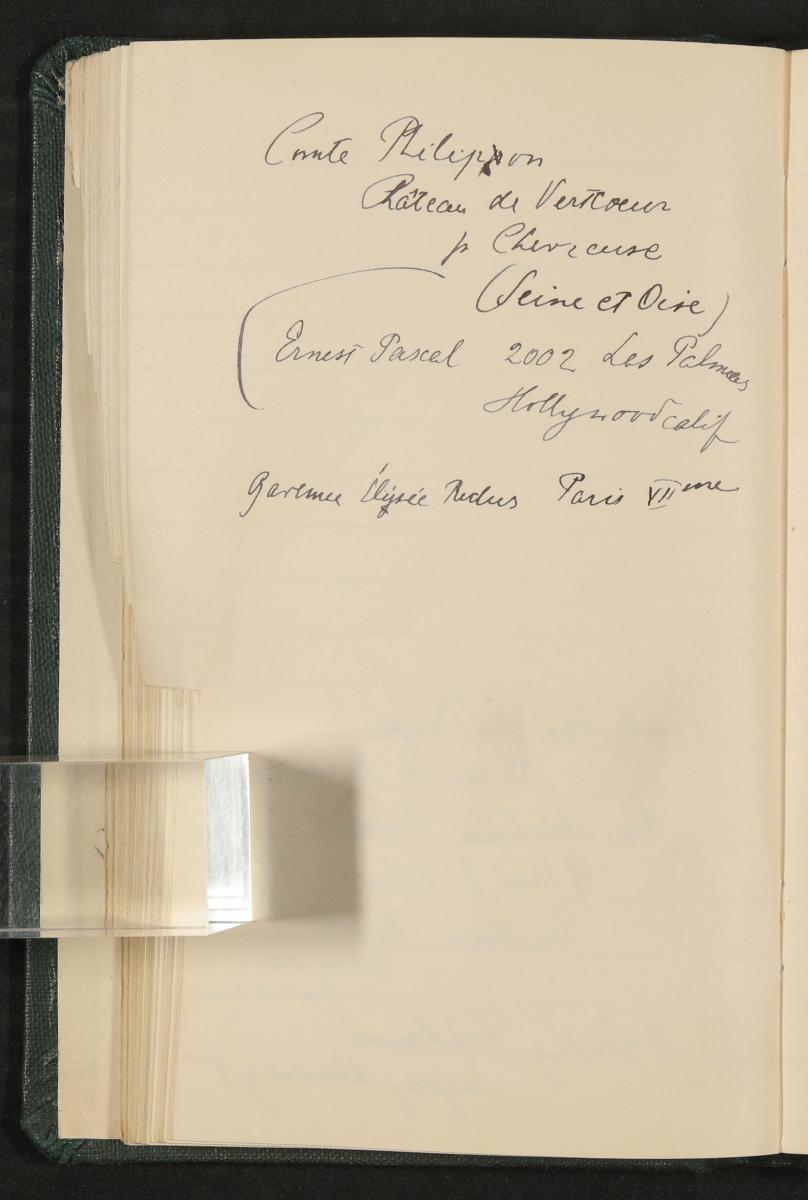 Comte Philippon
Château de Vertcoeur
p Chevreuse
(Seine et Oise)
Ernest Pascal 2002 Las Palmas
Hollywood Calif
Élysée Reclus Paris VII me